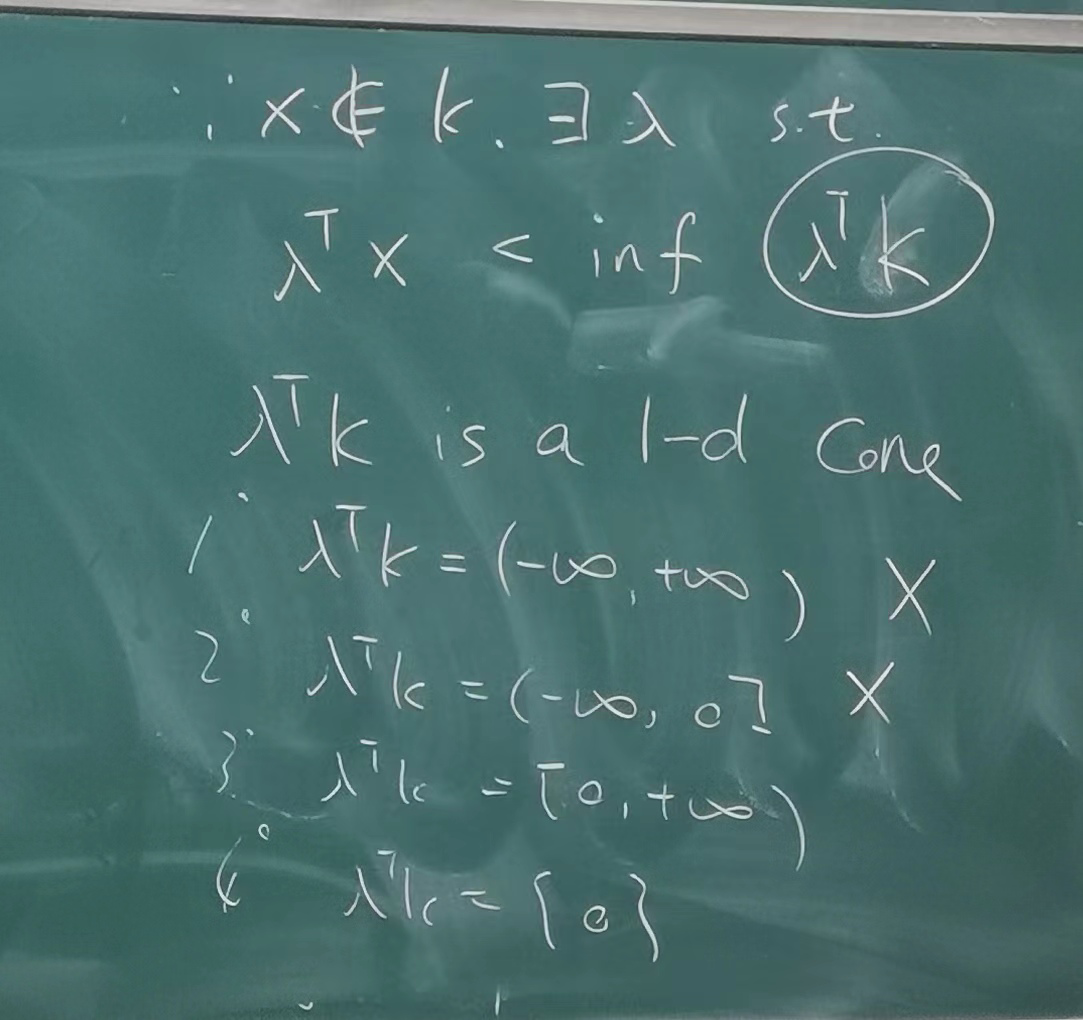 ∵ x ∉ k. ∃ λ s.t.
λᵀx < inf λᵀk
λᵀk is a 1-d Cone
1° λᵀk = (-∞, +∞) X
2° λᵀk = (-∞, 0] X
3° λᵀk = [0, +∞)
4° λᵀk = {0}